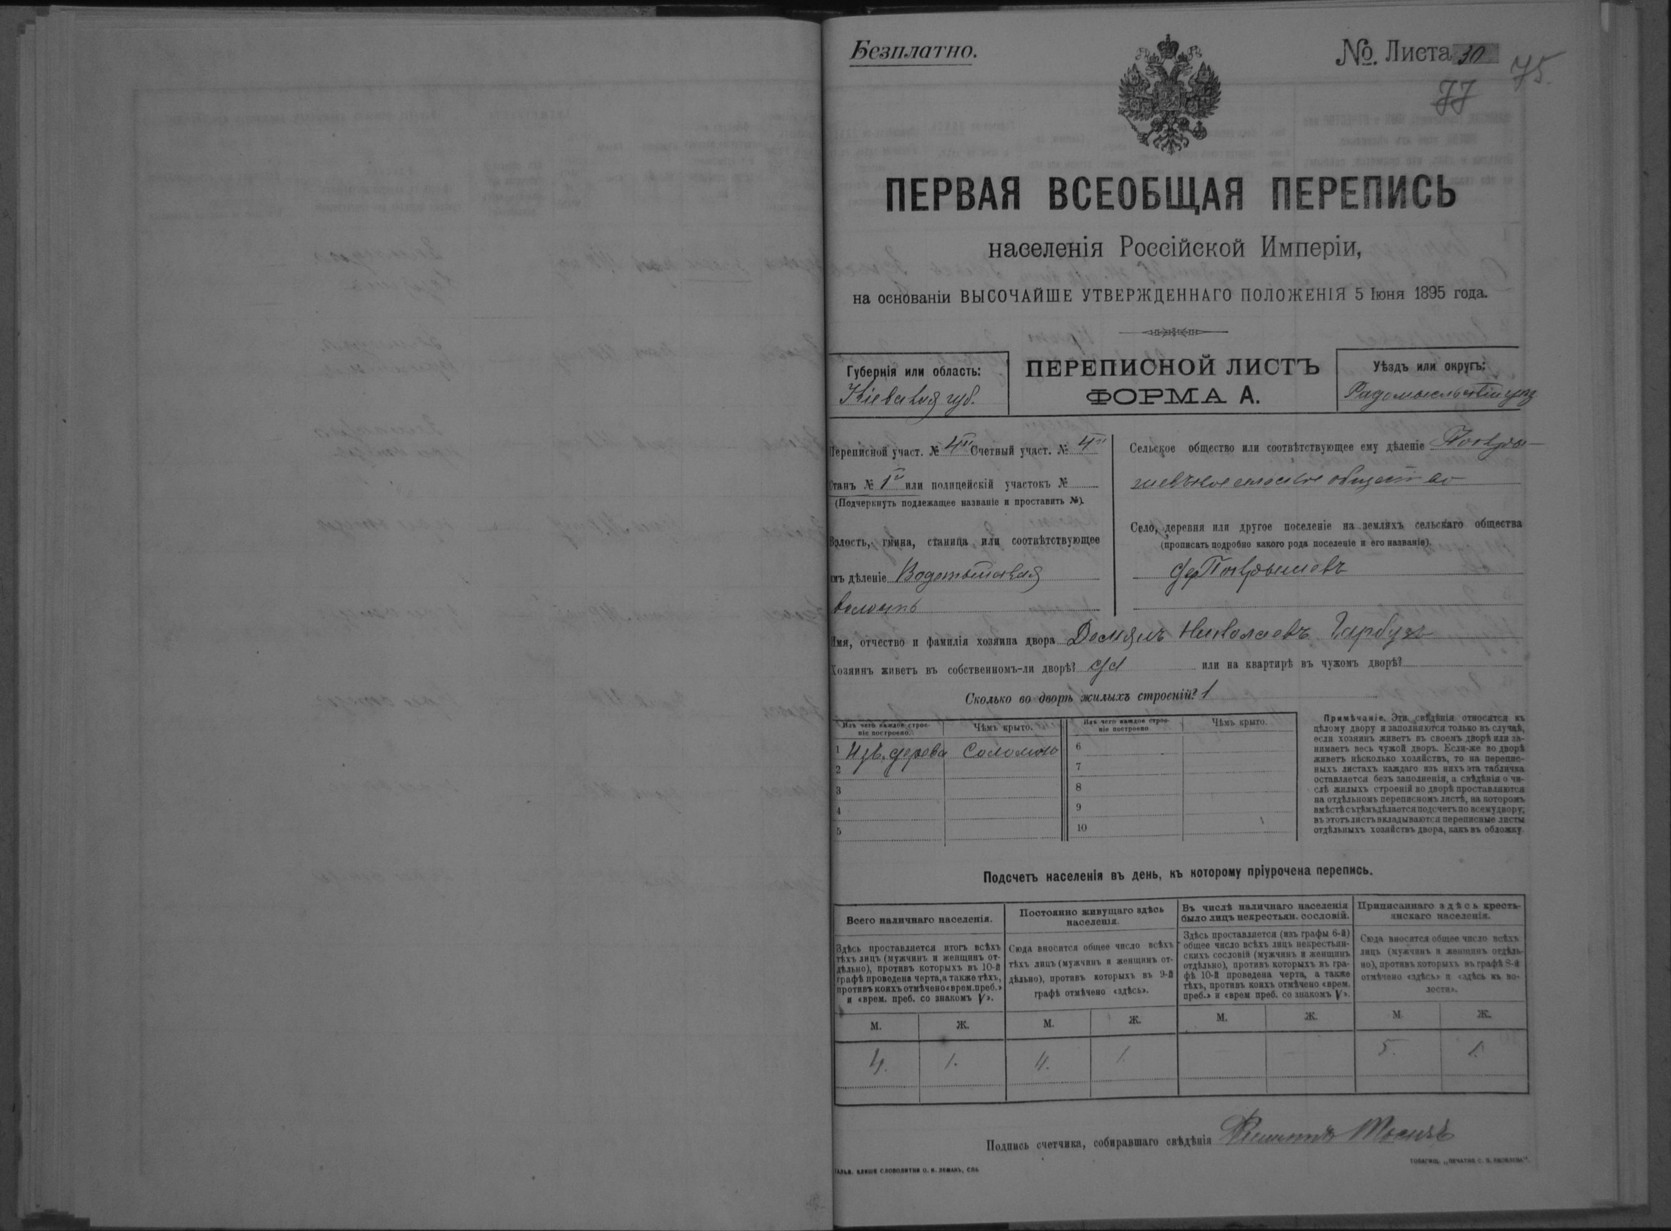 Безплатно.
№. Листа 30
77 75.
ПЕРВАЯ ВСЕОБЩАЯ ПЕРЕПИСЬ
населенія Россійской Имперіи,
на основаніи ВЫСОЧАЙШЕ УТВЕРЖДЕННАГО ПОЛОЖЕНІЯ 5 Іюня 1895 года.
Губернія или область:
Кіевская губ.
ПЕРЕПИСНОЙ ЛИСТЪ
ФОРМА А.
Уѣздъ или округъ:
Радомысльскій уѣз
Переписной участ. № 4й Счетный участ. № 4й
Станъ № 1й или полицейскій участокъ №
(Подчеркнуть подлежащее названіе и проставить №).
Волость, гмина, станица или соотвѣтствующее
имъ дѣленіе
волость
Сельское общество или соотвѣтствующее ему дѣленіе
сельское общество
Село, деревня или другое поселеніе на земляхъ сельскаго общества
(прописать подробно какого рода поселеніе и его названіе)
Имя, отчество и фамилія хозяина двора Демьянъ Николаевъ Гарбузъ
Хозяинъ живетъ въ собственномъ-ли дворѣ? да или на квартирѣ въ чужомъ дворѣ?
Сколько во дворѣ жилыхъ строеній? 1
Изъ чего каждое строе-
ніе построено. Чѣмъ крыто.
Изъ чего каждое строе-
ніе построено Чѣмъ крыто.
1 Изъ дерева Соломою 6
2 7
3 8
4 9
5 10
Примѣчаніе. Эти свѣдѣнія относятся къ
цѣлому двору и заполняются только въ случаѣ,
если хозяинъ живетъ въ своемъ дворѣ или за-
нимаетъ весь чужой дворъ. Если-же во дворѣ
живетъ нѣсколько хозяйствъ, то на перепис-
ныхъ листахъ каждаго изъ нихъ эта табличка
оставляется безъ заполненія, а свѣдѣнія о чи-
слѣ жилыхъ строеній во дворѣ проставляются
на отдѣльномъ переписномъ листѣ, на которомъ
вмѣстѣ съ тѣмъ дѣлается подсчетъ по всему двору;
въ этотъ листъ вкладываются переписные листы
отдѣльныхъ хозяйствъ двора, какъ въ обложку.
Подсчетъ населенія въ день, къ которому пріурочена перепись.
Всего наличнаго населенія.
Здѣсь проставляется итогъ всѣхъ
тѣхъ лицъ (мужчинъ и женщинъ от-
дѣльно), противъ которыхъ въ 10-й
графѣ проведена черта, а также тѣхъ,
противъ коихъ отмѣчено «врем. преб.»
и «врем. преб. со знакомъ V».
Постоянно живущаго здѣсь
населенія.
Сюда вносится общее число всѣхъ
тѣхъ лицъ (мужчинъ и женщинъ от-
дѣльно), противъ которыхъ въ 9-й
графѣ отмѣчено «здѣсь».
Въ числѣ наличнаго населенія
было лицъ некрестьян. сословій.
Здѣсь проставляется (изъ графы 6-й)
общее число всѣхъ лицъ некрестьян-
скихъ сословій (мужчинъ и женщинъ
отдѣльно), противъ которыхъ въ гра-
фѣ 10-й проведена черта, а также
тѣхъ, противъ коихъ отмѣчено «врем.
преб.» и «врем преб. со знакомъ V».
Приписаннаго здѣсь кресть-
янскаго населенія.
Сюда вносится общее число всѣхъ
лицъ (мужчинъ и женщинъ отдѣль-
но), противъ которыхъ въ графѣ 8-й
отмѣчено «здѣсь» и «здѣсь въ во-
лости».
М. Ж. М. Ж. М. Ж. М Ж.
4. 1. 4. 1. 5. 1.
Подпись счетчика, собиравшаго свѣдѣнія